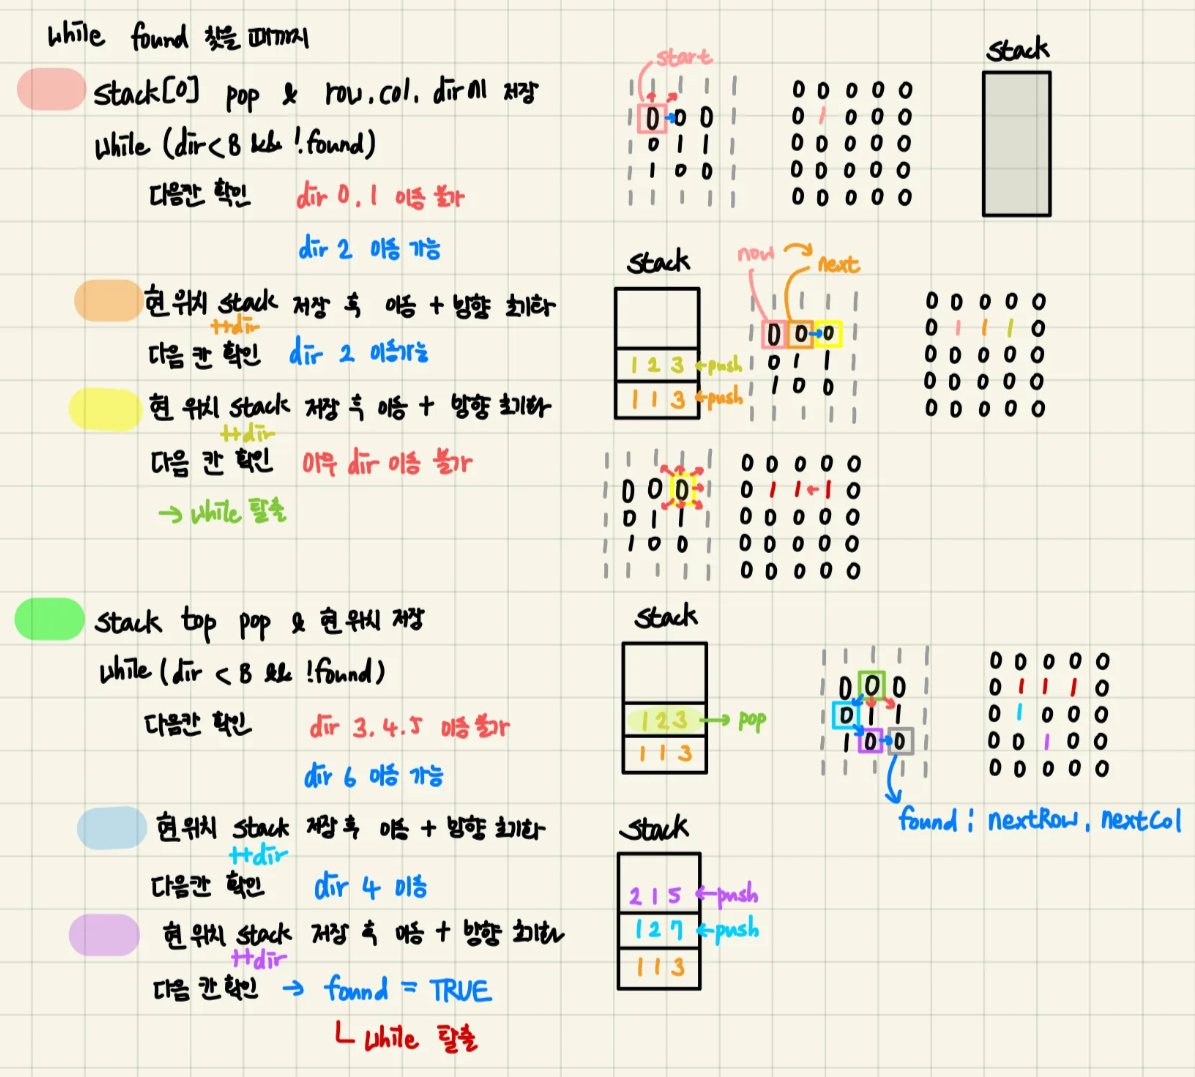 while found 찾을 때까지
stack[0] pop & row, col, dir에 저장
while (dir<8 && !found)
다음칸 확인 dir 0, 1 이동 불가
dir 2 이동 가능
현 위치 stack 저장 후 이동 + 방향 초기화
++dir
다음 칸 확인 dir 2 이동가능
현 위치 stack 저장 후 이동 + 방향 초기화
++dir
다음 칸 확인 아무 dir 이동 불가
→ while 탈출
start
1 1 1 1 1
1 0 0 0 1
1 0 1 1 1
1 1 0 0 1
1 1 1 1 1
0 0 0 0 0
0 1 0 0 0
0 0 0 0 0
0 0 0 0 0
0 0 0 0 0
Stack
Stack
1 2 3 ←push
1 1 3 ←push
now
next
1 1 1 1 1
1 0 0 → 0 1
1 0 1 1 1
1 1 0 0 1
1 1 1 1 1
0 0 0 0 0
0 1 1 1 0
0 0 0 0 0
0 0 0 0 0
0 0 0 0 0
1 1 1 1 1
1 0 0 0 1
1 0 1 1 1
1 1 0 0 1
1 1 1 1 1
0 0 0 0 0
0 1 1 ← 1 0
0 0 0 0 0
0 0 0 0 0
0 0 0 0 0
stack top pop & 현 위치 저장
while (dir < 8 && !found)
다음칸 확인 dir 3. 4. 5 이동 불가
dir 6 이동 가능
현 위치 stack 저장 후 이동 + 방향 초기화
++dir
다음칸 확인 dir 4 이동
현 위치 stack 저장 후 이동 + 방향 초기화
++dir
다음 칸 확인 → found = TRUE
ㄴ while 탈출
Stack
1 2 3 → pop
1 1 3
1 1 1 1 1
1 0 0 0 1
1 0 1 1 1
1 1 0 → 0 1
1 1 1 1 1
found : nextRow, nextCol
0 0 0 0 0
0 1 1 1 0
0 1 0 0 0
0 0 1 0 0
0 0 0 0 0
Stack
2 1 5 ←push
1 2 7 ←push
1 1 3